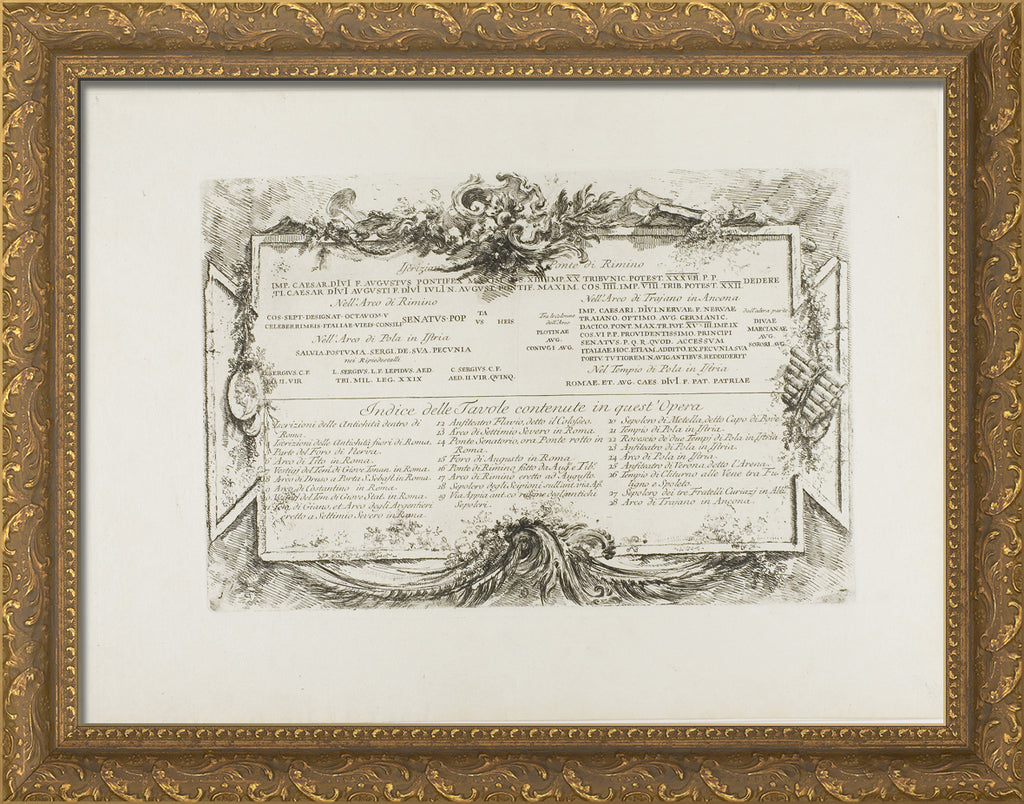 Iscrizi Ponte di Rimino
IMP. CAESAR. DIVI F. AUGUSTUS PONTIFEX MAXIM S. XIII IMP. XX TRIBVNIC. POTEST. XXXVII. P. P.
TI. CAESAR DIVI AUGUSTI F. DIVI IVLI N. AUGUST. PONTIF. MAXIM. COS. IIII. IMP. VIII. TRIB. POTEST. XXII. DEDERE
Nell' Arco di Rimino
COS · SEPT · DESIGNAT · OCTAVOM · V
CELEBERRIMEIS · ITALIAE · VIEIS · CONSILI SENATVS · POP TA
VS HEIS
Nell' Arco di Pola in Istria
SALVIA. POSTVMA. SERGI. DE. SVA. PECVNIA
nei Piedestalli
SERGIVS. C. F.
AED. II. VIR
L. SERGIVS. L. F. LEPIDVS. AED.
TRI. MIL. LEG. XXIX
C. SERGIVS. C. F.
AED. II. VIR. QVINQ.
Nell' Arco di Trajano in Ancona
PLOTINAE
AVG.
CONIVGI AVG.
IMP. CAESARI. DIVI. NERVAE. F. NERVAE
TRAIANO. OPTIMO. AVG. GERMANIC.
DACICO. PONT. MAX. TR. POT. IMP. IX
COS. VI. P. P. PROVIDENTISSIMO. PRINCIPI
SENATVS. P. Q. R. QVOD. ACCESSVM
ITALIAE. HOC. ETIAM. ADDITO. EX. PECVNIA. SVA
PORTV. TVTIOREM. NAVIGANTIBVS. REDDIDERIT
dall'altra parte
DIVAE
MARCIANAE
AVG.
SORORI. AVG.
Nel Tempio di Pola in Istria
ROMAE. ET. AVG. CAES DIVI. F. PAT. PATRIAE
Indice delle Tavole contenute in quest' Opera
Iscrizioni delle Antichità dentro di
Roma.
Iscrizioni delle Antichità fuori di Roma.
Parte del Foro di Nerva.
Arco di Tito in Roma.
Vestigj del Tem. di Giove Tonan. in Roma.
Arco di Druso a Porta S. Sebast. in Roma.
Arco di Costantino in Roma.
del Tem. di Giove Stat. in Roma.
di Giano, et Arco degli Argentieri
eretto a Settimio Severo in Roma
12 Anfiteatro Flavio, detto il Colosseo.
13 Arco di Settimio Severo in Roma.
14 Ponte Senatorio, ora Ponte rotto in
Roma.
15 Foro di Augusto in Roma
16 Ponte di Rimino fatto da Aug. e Tib.
17 Arco di Rimino eretto ad Augusto.
18 Sepolcro degli Scipioni
19 Via Appia degl'antichi
Sepolcri.
20 Sepolcro di Metella, detto Capo di Bove.
21 Tempio di Pola in Istria.
22 Rovescio de' due Tempj di Pola in Istria
23 Anfiteatro di Pola in Istria.
24 Arco di Pola in Istria.
25 Anfiteatro di Verona, detto l'Arena.
26 Tempio di Clitunno alle Vene tra Fu=
ligno e Spoleto.
27 Sepolcro dei tre Fratelli Curiazj in Alb.
28 Arco di Trajano in Ancona.